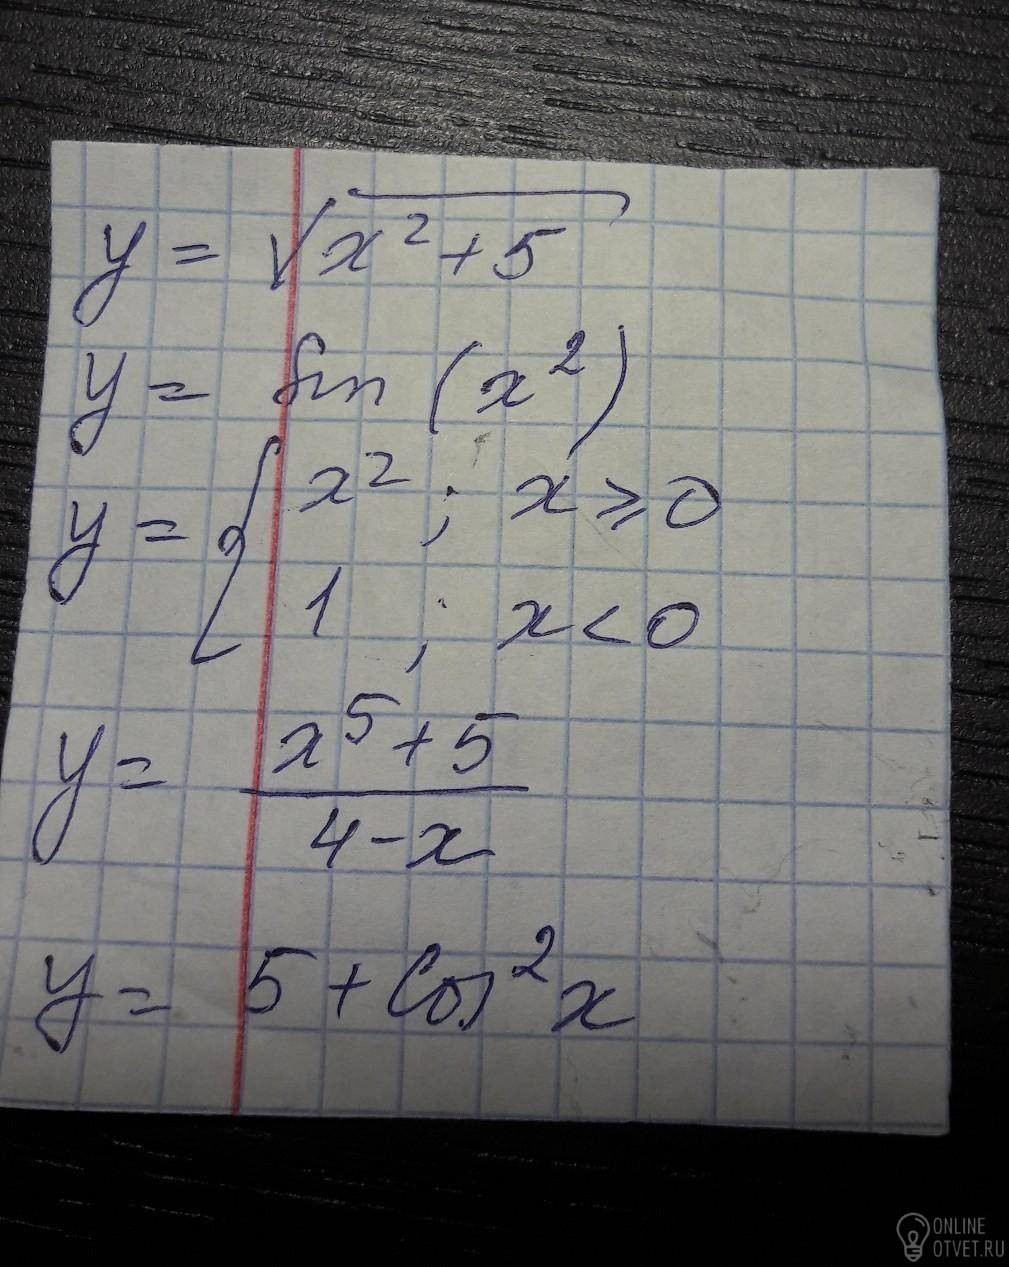 y = √(x² + 5)
y = sin (x²)
y = { x² ; x ⩾ 0
1 ; x < 0
y = (x⁵ + 5) / (4 - x)
y = 5 + cos² x
ONLINE
OTVET.RU